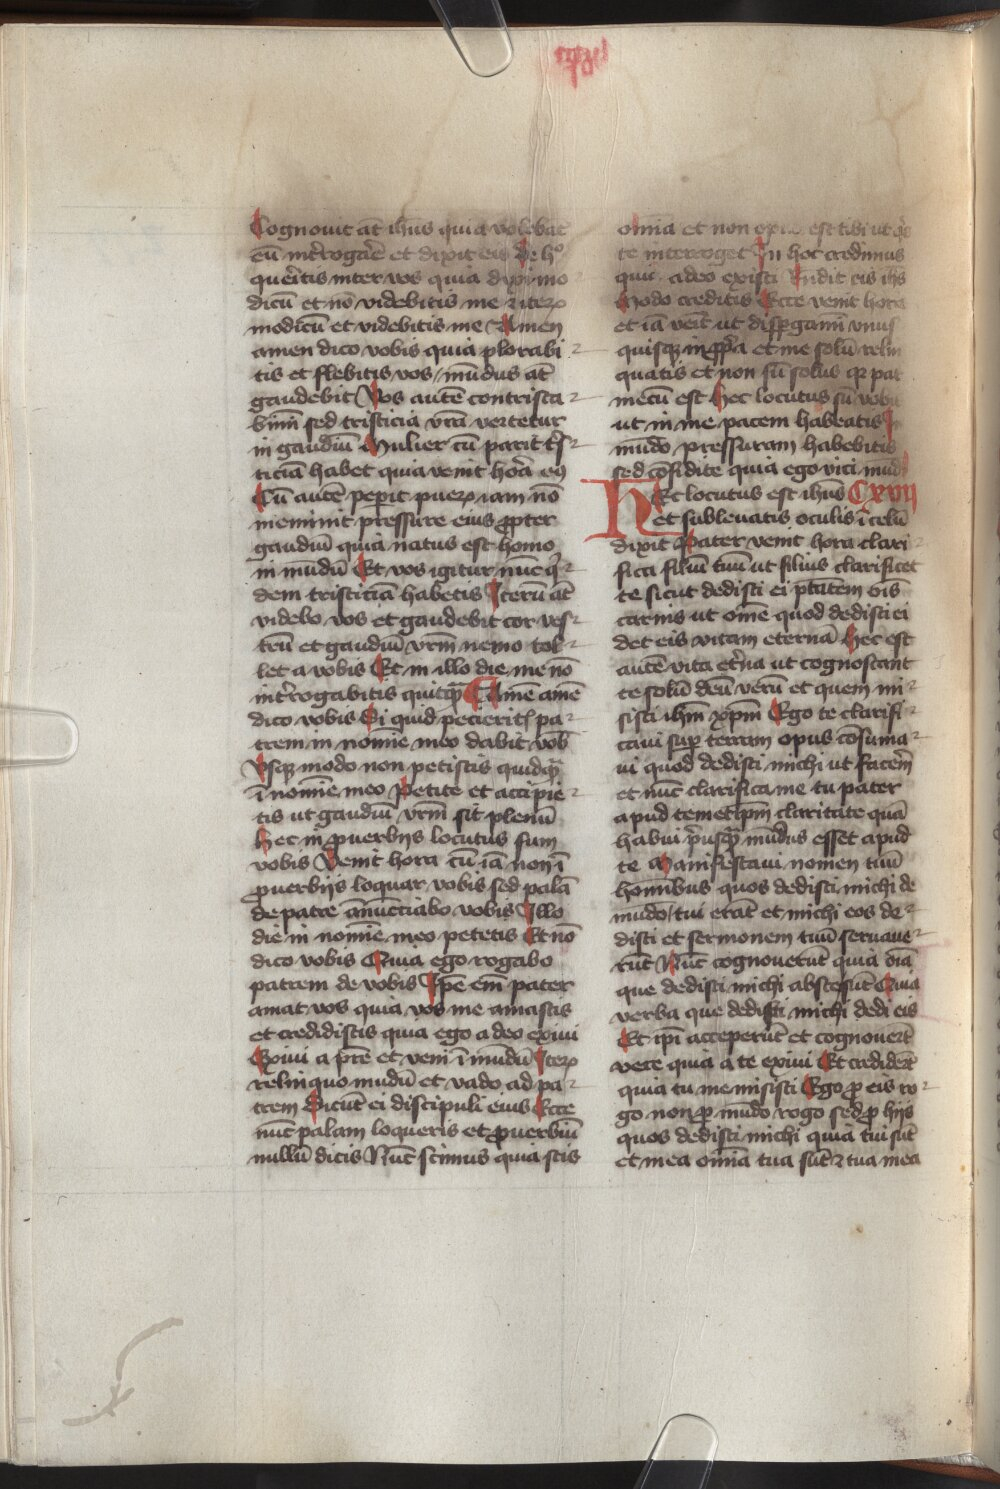 Cognouit at̄ ih̄us quia volebāt
eū int̄rogar̄e et dixit eis de h°
querit̄is inter vos quia dixi mo
dicū et nō videbitis me ⁊ iterꝝ
modicū et videbitis me Amen
amen dico vobis quia plorabi
tis et flebitis vos / mūdus at̄
gaudebit Vos autē contrista
bimī sed tristicia vrā vertetur
in gaudiū Mulier cū parit tris
ticiā habet quia venit hora eꝯ
Cū autē peperit puerꝝ iam nō
meminit pressure eius ꝓpter
gaudiū quia natus est homo
in mūdū Et vos igitur nūc qͥ
dem tristiciā habetis Iterū at̄
videbo vos et gaudebit cor ves
trū et gaudiū vrm̄ nemo tol
let a vobis Et in illo die me nō
int̄rogabitis quicqͣ Amē amē
dico vobis Si quid pecierit̄ pa
trem in nomīe meo dabit vob̄
Vsqꝫ modo non petistis quidqͣ
ī nomīe meo Petite et accipie
tis ut gaudiū vrm̄ sit plenū
Hec in ꝓuerbijs locutus sum
vobis Venit hora cū iā non ī
ꝓuerbijs loquar vobis sed palā
de patre ānūctiabo vobis Illo
die in nomīe meo petetis Et nō
dico vobis Quia ego rogabo
patrem de vobis Ip̄e em̄ pater
amat vos quia vos me amastis
et credidistis quia ego a deo exiui
Exiui a pr̄e et veni ī mūdū Iterꝝ
relinquo mūdū et vado ad pa
trem Dicūt ei discipuli eius Ecce
nūc palam loqueris et ꝓuerbiū
nullū dicis Nūc scimus quia scis
omnia et non opus est tibi ut qͥs
te interroget In hoc credimus
quia a deo existi Rndit eis ih̄s
Modo creditis Ecce venit hora
et iā venit ut disꝑgamī vnus
quisqꝫ in ꝓpͥa et me solū relin
quatis et non sū solus qꝛ pat
mecū est Hec locutus sū vobis
ut in me pacem habeatis In
mūdo pressuram habebitis
sed cōfidite quia ego vici mūdū
HEc locutus est ih̄us Cxvii
et subleuatis oculis ī celū
dixit Pater venit hora clari
fica filiū tuū ut filius clarificet
te sicut dedisti ei ptātem oīs
carnis ut omē quod dedisti ei
det eis vitam eternā Hec est
autē vita etr̄na ut cognoscant
te solū deū verū et quem mi
sisti ih̄m xp̄m Ego te clarifi
caui suꝑ terram opus cōsuma
ui quod dedisti michi ut facerē
et nūc clarifica me tu pater
apud temetip̄m claritate quā
habui pͥusqͣ mūdus esset apud
te Manifestaui nomen tuū
homībus quos dedisti michi de
mūdo / tui erāt et michi eos de
disti et sermonem tuū seruaue
rūt Nūc cognouerūt quia oīa
que dedisti michi abs te sūt Quia
verba que dedisti michi dedi eis
Et ip̄i acceperūt et cognouerūt
vere quia a te exiui Et credider̄t
quia tu me misisti Ego ꝓ eis ro
go non ꝓ mūdo rogo sed ꝓ hijs
quos dedisti michi quia tui sūt
et mea omīa tua sūt ⁊ tua mea